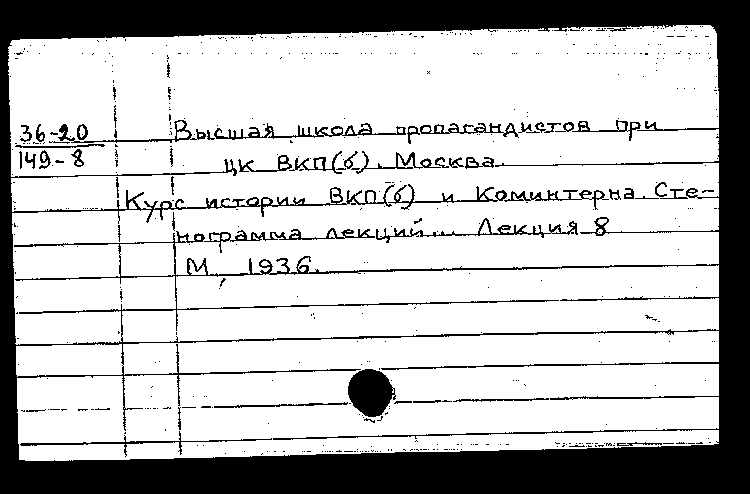 36-20
149-8
Высшая школа пропагандистов при
ЦК ВКП(б). Москва.
Курс истории ВКП(б) и Коминтерна. Сте-
нограмма лекций... Лекция 8
М., 1936.